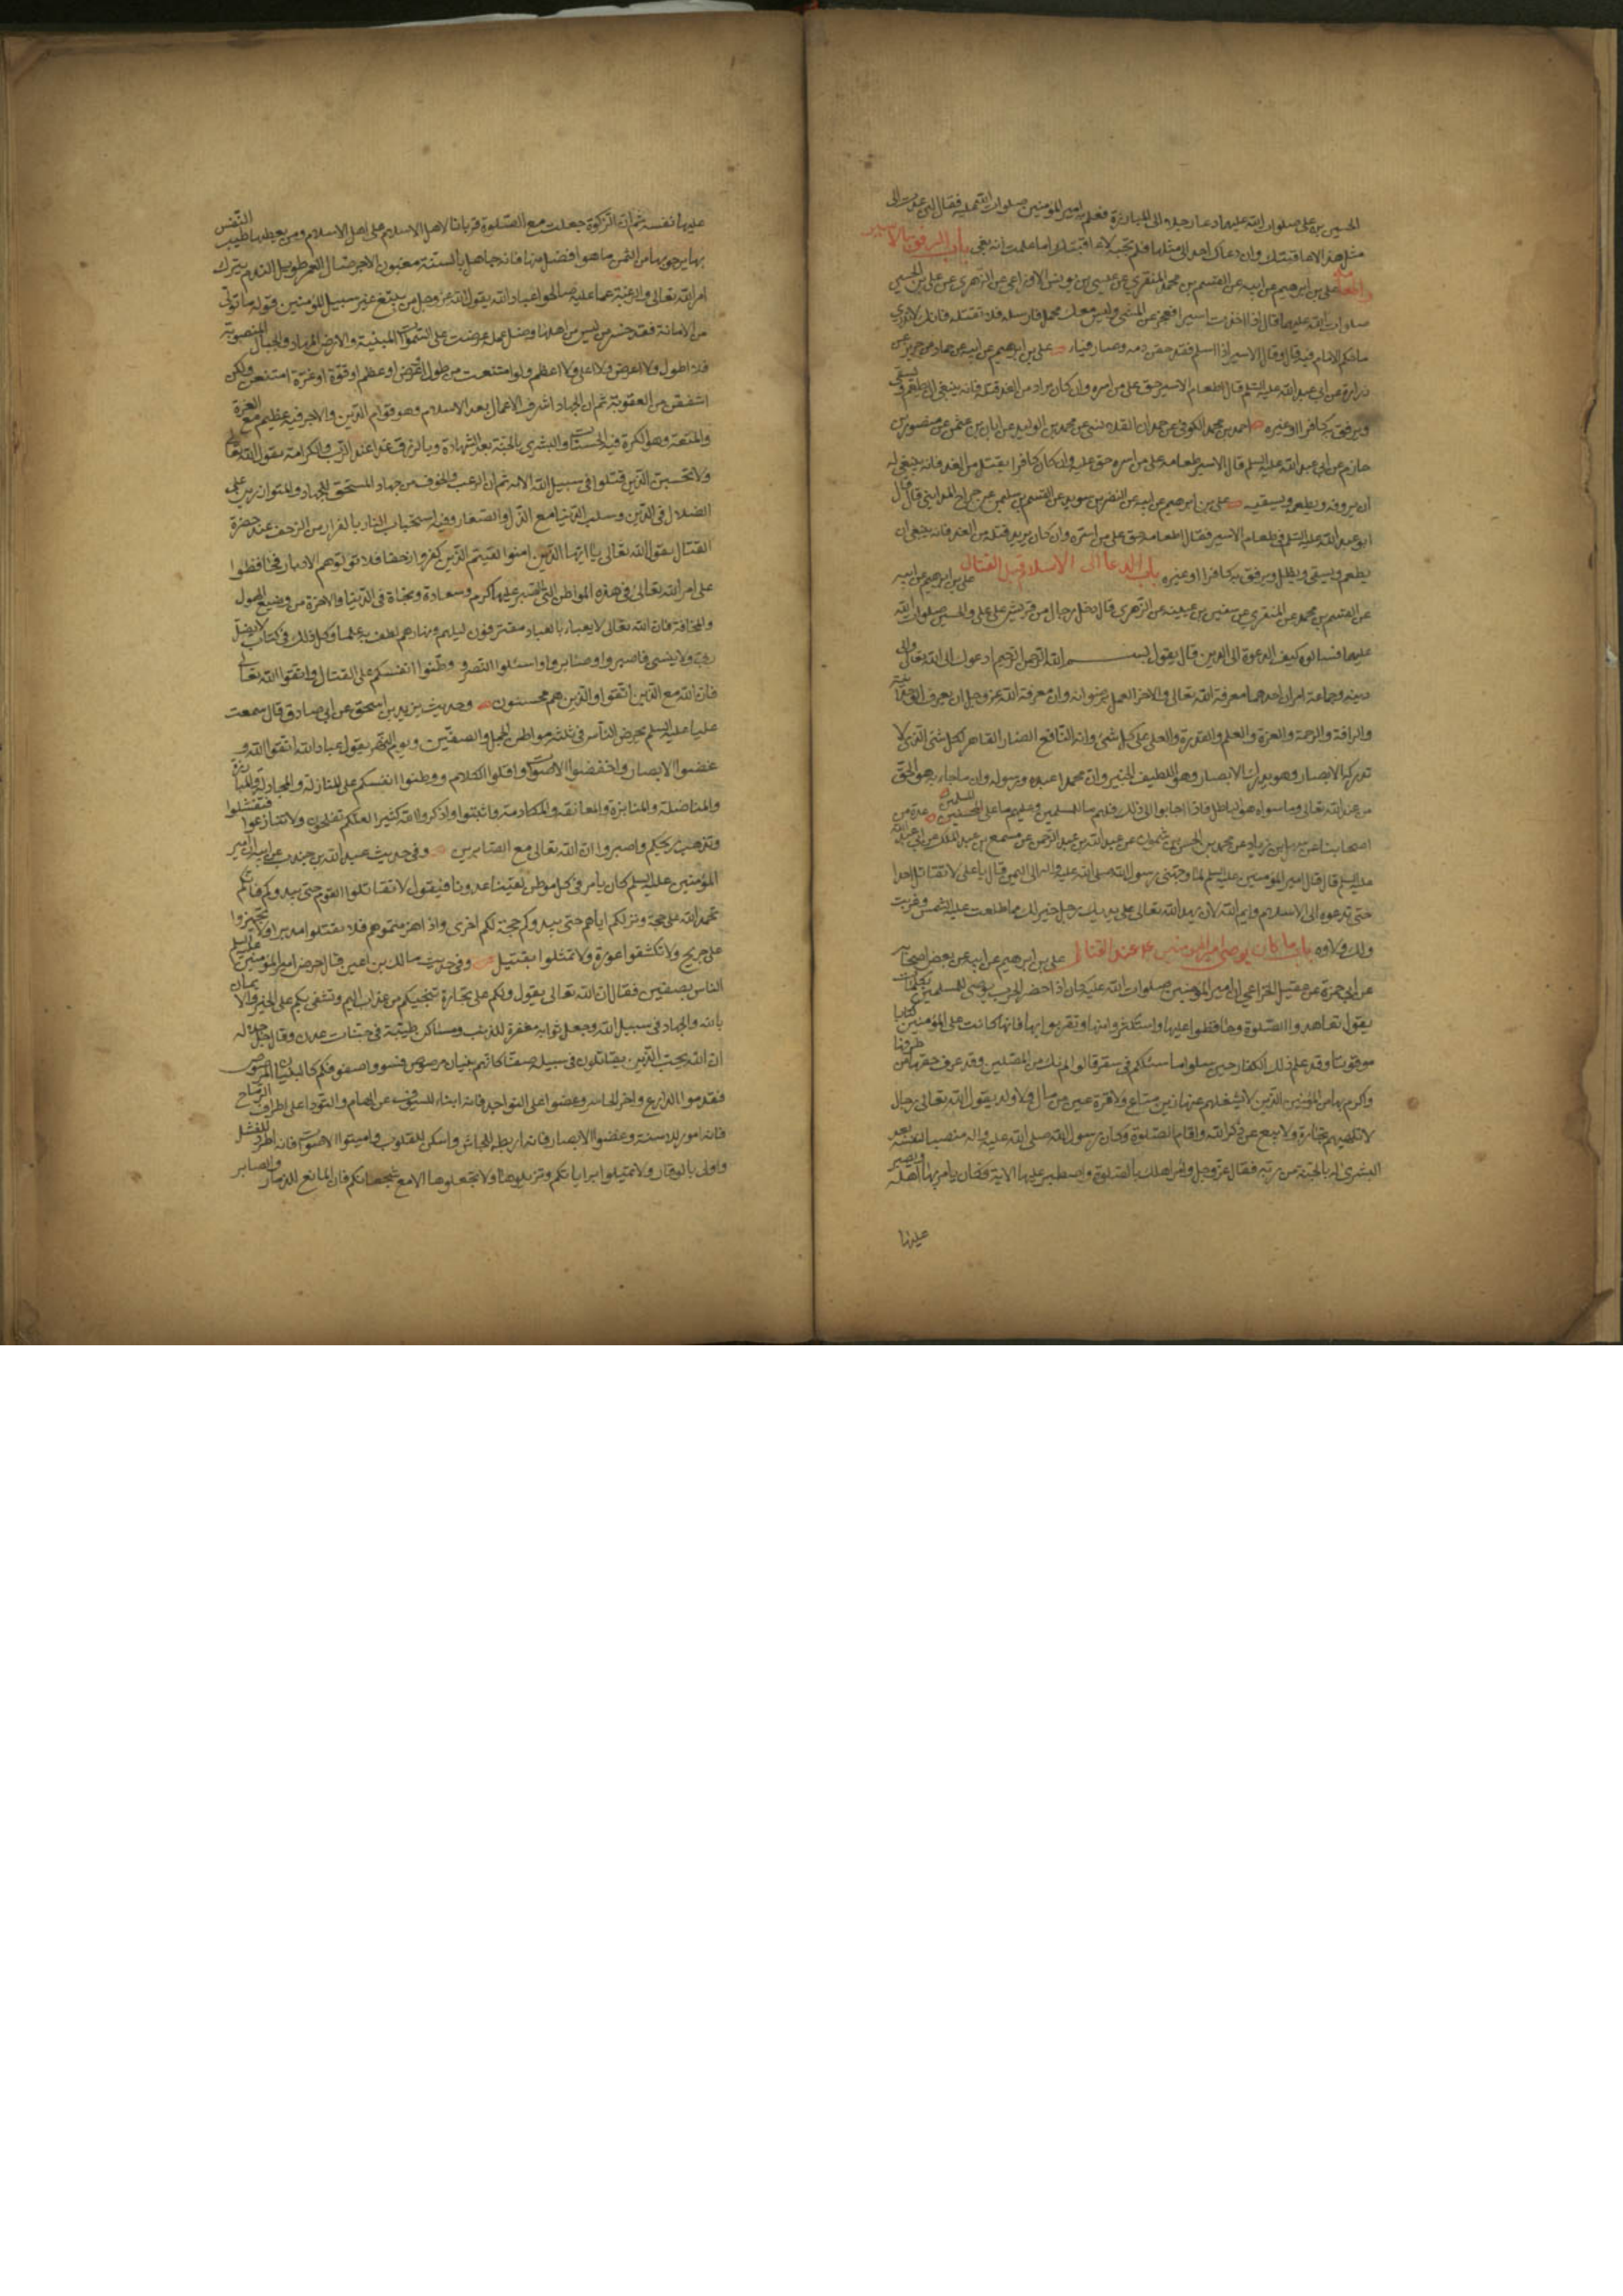 الحسين بن على صلوات الله عليهما دعا رجلا الى المبارزة فعلم به امير المؤمنين صلوات الله عليه فقال لئن عدت الى
مثل هذا لاعاقبنك وان دعاك احد الى مثلها فلم تجبه لاعاقبنك اما علمت انه بغى باب الرفق بالاسير
واطعامه على بن ابرهيم عن ابيه عن القسم بن محمد عن المنقري عن عيسى بن يونس الاوزاعى عن الزهرى عن على بن الحسين
صلوات الله عليهما قال اذا اخذت اسيرا فعجز عن المشى وليس معك محمل فارسله فلا تقتله فانك لا تدرى
ما حكم الامام فيه قال وقال الاسير اذا اسلم فقد حقن دمه وصار فيئا على بن ابرهيم عن ابيه عن حماد عن حريز عن
زرارة عن ابى عبد الله عليه السلم قال اطعام الاسير حق على من اسره وان كان يراد من الغد قتله فانه ينبغى ان يطعم ويسقى
ويرفق به كافرا او غيره احمد بن محمد الكوفى عن حمدان القلانسى عن محمد بن الوليد عن ابان بن عثمن عن منصور بن
حازم عن ابى عبد الله عليه السلم قال الاسير طعامه على من اسره حق عليه وان كان كافرا يقتل من الغد فانه ينبغى له
ان يروفه ويطعمه ويسقيه على بن ابرهيم عن ابيه عن النضر بن سويد عن القسم بن سليمن عن جراح المداينى قال قال
ابو عبد الله عليه السلم فى طعام الاسير فقال اطعامه حق على من اسره وان كان يريد قتله من الغد فانه ينبغى ان
يطعم ويسقى ويظل ويرفق به كافرا او غيره باب الدعا الى الاسلام قبل القتال على بن ابرهيم عن ابيه
عن القسم بن محمد عن المنقري عن سفين بن عيينه عن الزهرى قال دخل رجال من قريش على على بن الحسين صلوات الله
عليهما فسالوه كيف الدعوة الى الدين قال يقول بسم الله الرحمن الرحيم ادعوك الى الله تعالى والى
دينه وجماعه امران احدهما معرفة الله تعالى والاخر العمل برضوانه وان معرفة الله عز وجل ان يعرف بالوحدانية
والرافة والرحمة والعزة والعلم والقدرة والعلى على كل شئ وانه النافع الضار القاهر لكل شئ الذى لا
تدركه الابصار وهو يدرك الابصار وهو اللطيف الخبير وان محمدا عبده ورسوله وان ما جاء به هو الحق
من عند الله تعالى وما سواه هو الباطل فاذا اجابوا الى ذلك فلهم ما للمسلمين وعليهم ما على المسلمين عدة من
اصحابنا عن سهل بن زياد عن محمد بن الحسن بن شمون عن عبد الله بن عبد الرحمن عن مسمع بن عبد الملك عن ابى عبد الله
عليه السلم قال قال امير المؤمنين عليه السلم لما وجهنى رسول الله صلى الله عليه واله الى اليمن قال يا على لا تقاتل احدا
حتى تدعوه الى الاسلام وايم الله لان يهدى الله تعالى على يديك رجل خير لك مما طلعت عليه الشمس وغربت
ولك ولاوه باب ما كان يوصى امير المؤمنين ع عند القتال على بن ابرهيم عن ابيه عن بعض اصحابه
عن ابى حمزة عن عقيل الخزاعى ان امير المؤمنين صلوات الله عليه كان اذا حضر الحرب يوصى للمسلمين بكلمات
يقول تعاهدوا الصلوة وحافظوا عليها واستكثروا منها وتقربوا بها فانها كانت على المؤمنين كتابا
موقوتا وقد علم ذلك الكفار حين سئلوا ما سلككم فى سقر قالوا لم نك من المصلين وقد عرف حقها من طرقها
واكرم بها من المؤمنين الذين لا يشغلهم عنها زين متاع ولا قرة عين من مال ولا ولد يقول الله تعالى رجال
لا تلهيهم تجارة ولا بيع عن ذكر الله واقام الصلوة وكان رسول الله صلى الله عليه واله منصبا لنفسه بعد
البشرى له بالجنة من ربه فقال عز وجل وأمر اهلك بالصلوة واصطبر عليها الاية فكان يامر بها اهله ويصبر
عليها
عليها نفسه ثم ان الزكوة جعلت مع الصلوة قربانا لاهل الاسلام على اهل الاسلام ومن يعطها طيب النفس
بها يرجو بها من الثمن ما هو افضل منها فانه جاهل بالسنة مغبون الاجر ضال العمر طويل الندم بترك
امر الله تعالى والرغبة عما عليه صالحوا عباد الله يقول الله عز وجل ومن يتبع غير سبيل المؤمنين نوله ما تولى
من الامانة فقد خسر من ليس من اهلها وضل عمله عرضت على السموات المبنية والارض المهاد والجبال المنصوبة
فلا اطول ولا اعرض ولا اعلى ولا اعظم ولو امتنعت من طول او عرض او عظم او قوة او عزة امتنعن ولكن
اشفقن من العقوبة ثم ان الجهاد اشرف الاعمال بعد الاسلام وهو قوام الدين والاجر فيه عظيم مع العزة
والمنعة وهو الكرة فيه الحسنات والبشرى بالجنة بعد الشهادة وبالرزق غدا عند الرب والكرامة يقول الله تعالى
ولا تحسبن الذين قتلوا فى سبيل الله الاية ثم ان الرعب والخوف من جهاد المستحق للجهاد والمتوازرين على
الضلال فى الدين وسلب الدنيا مع الذل والصغار وفيه استحباب النار بالفرار من الزحف عند حضرة
القتال يقول الله تعالى يا ايها الذين امنوا اذا لقيتم الذين كفروا زحفا فلا تولوهم الادبار فحافظوا
على امر الله تعالى فى هذه المواطن التى الصبر عليها كرم وسعادة ونجاة فى الدنيا والاخرة من فضيع الهول
والمخافة فان الله تعالى لا يعباء بما العباد مقترفون ليلهم ونهارهم لطف به علما وكل ذلك فى كتاب لا يضل
ربى ولا ينسى فاصبروا وصابروا واسئلوا النصر ووطنوا انفسكم على القتال واتقوا الله تعالى
فان الله مع الذين اتقوا والذين هم محسنون وحديث يزيد بن اسحق عن ابى صادق قال سمعت
عليا عليه السلم يحرض الناس فى ثلثة مواطن الجمل والصفين ويوم النهر يقول عباد الله اتقوا الله و
غضوا الابصار واخفضوا الاصوات واقلوا الكلام ووطنوا انفسكم على المنازلة والمجادلة والمبارزة
والمناضلة والمنابزة والمعانقة والمكادمة واثبتوا واذكروا الله كثيرا لعلكم تفلحون ولا تنازعوا فتفشلوا
وتذهب ريحكم واصبروا ان الله تعالى مع الصابرين وفى حديث عبد الله بن جندب عن ابيه ان امير
المؤمنين عليه السلم كان يامر فى كل موطن لقينا عدونا فيقول لا تقاتلوا القوم حتى يبدوكم فانكم
بحمد الله على حجة وترككم اياهم حتى يبدوكم حجة لكم اخرى واذا هزمتموهم فلا تقتلوا مدبرا ولا تجهزوا
على جريح ولا تكشفوا عورة ولا تمثلوا بقتيل وفى حديث مالك بن اعين قال حرض امير المؤمنين عليه السلم
الناس بصفين فقال ان الله تعالى يقول دلكم على تجارة تنجيكم من عذاب اليم وتشفى بكم على الخير والايمان
بالله والجهاد فى سبيل الله وجعل ثوابه مغفرة للذنب ومساكن طيبة فى جنات عدن وقال جل جلاله
ان الله يحب الذين يقاتلون فى سبيله صفا كانهم بنيان مرصوص فسووا صفوفكم كالبنيان المرصوص
فقدموا الدارع واخروا الحاسر وعضوا على النواجد فانه انباء للسيوف عن الهام والتووا على اطراف الرماح
فانه امور للاسنة وغضوا الابصار فانه اربط للجاش واسكن للقلوب واميتوا الاصوات فانه اطرد للفشل
واولى بالوقار ولا تميلوا براياتكم ولا تزيلوها ولا تجعلوها الا مع شجعانكم فان المانع للذمار والصابر